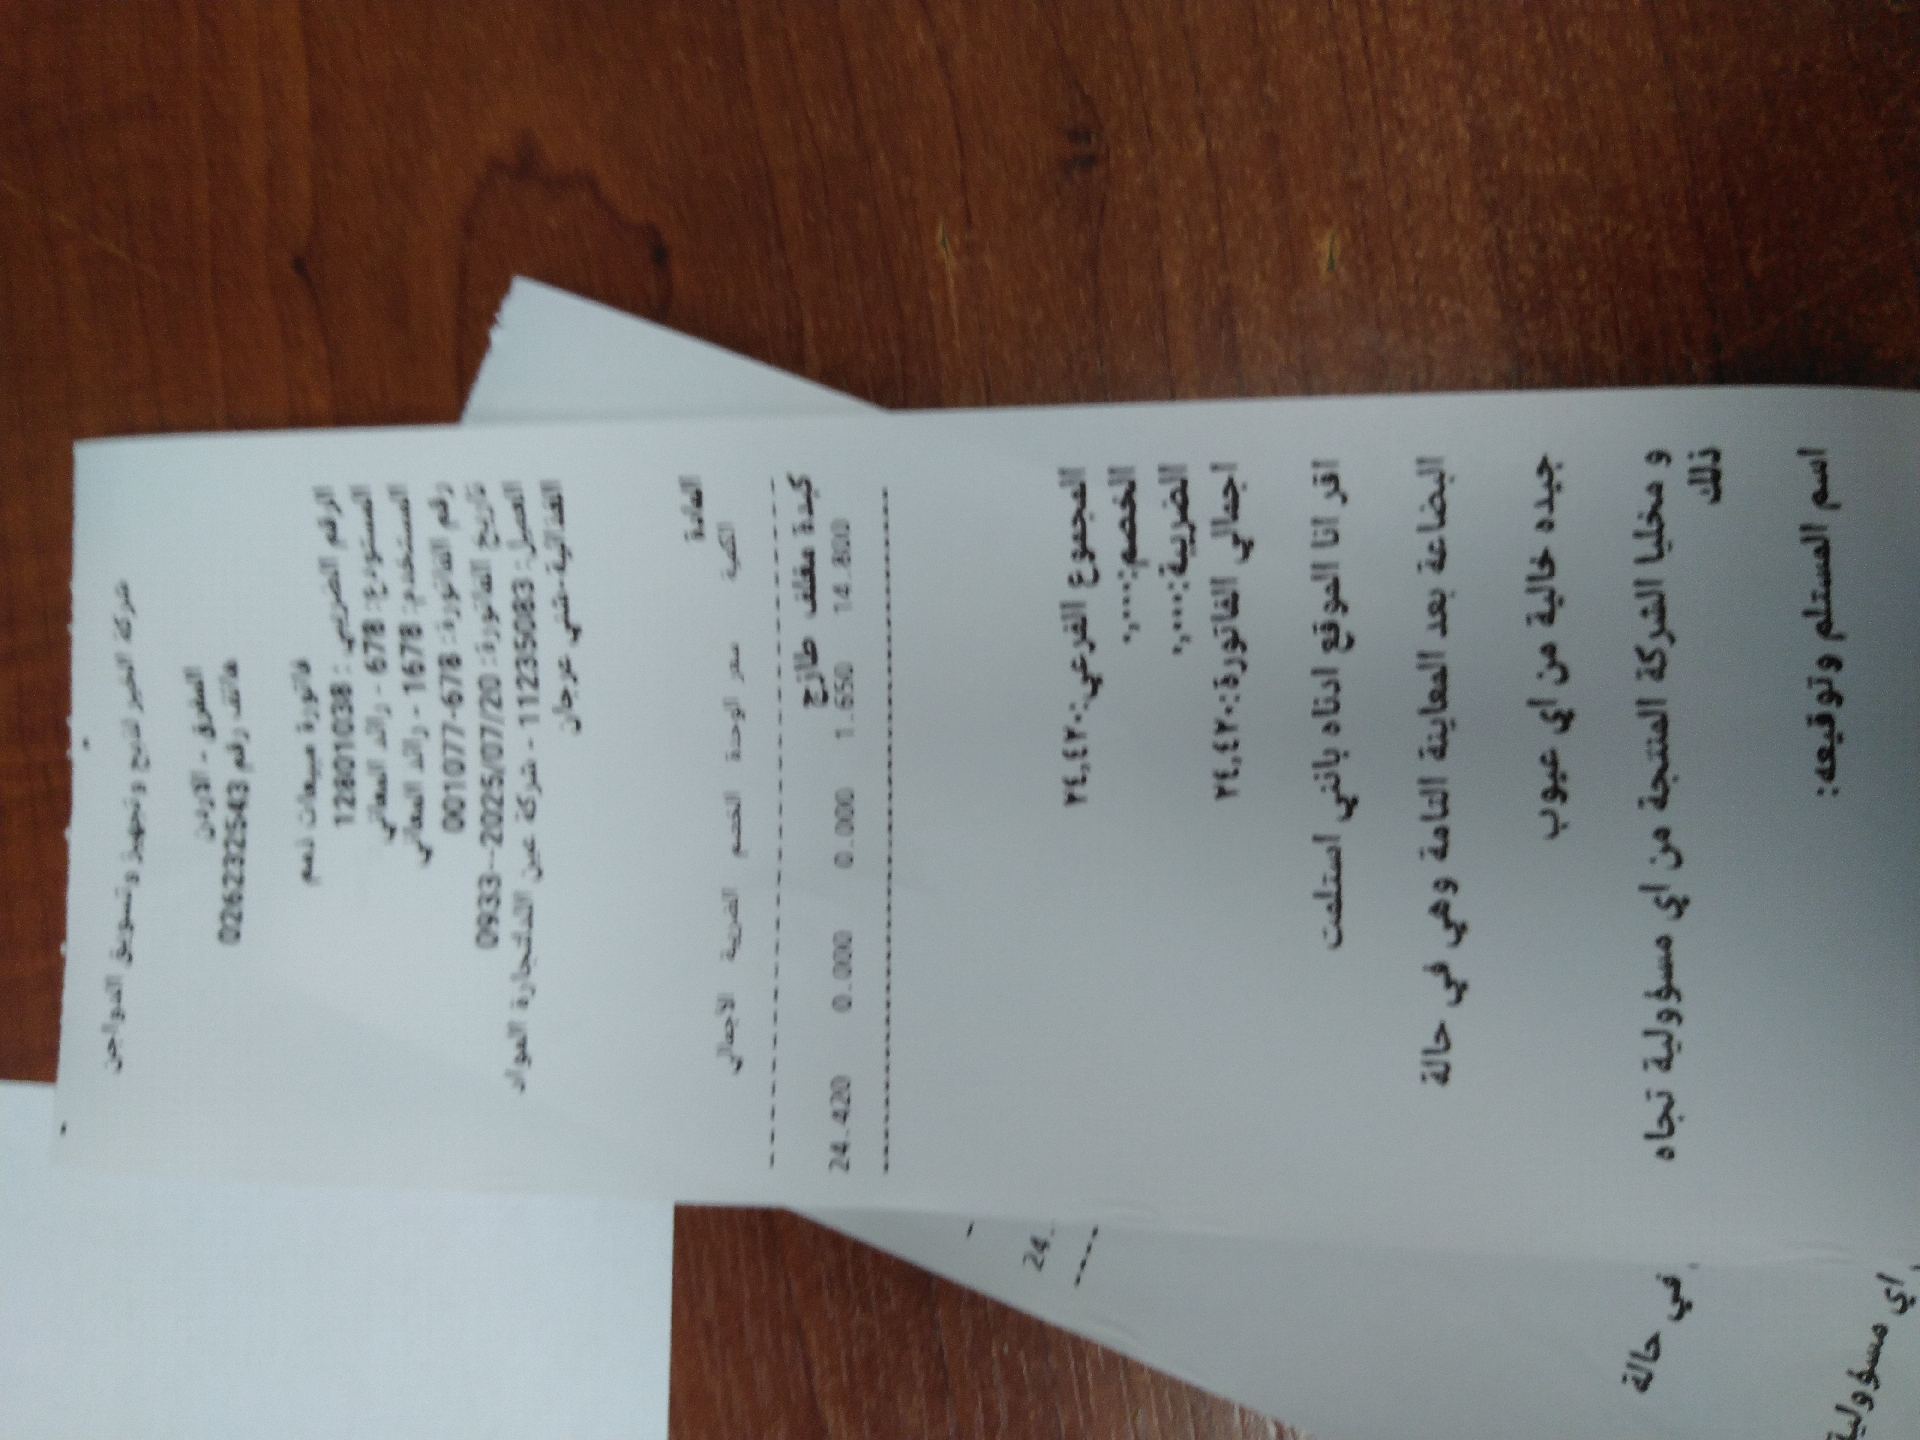 شركة الخير لذبح وتجهيز وتسويق الدواجن
المفرق - الاردن
هاتف رقم 026232543
فاتورة مبيعات ذمم
الرقم الضريبي : 12801038
المستودع: 678 - رائد المعاني
المستخدم: 1678 - رائد المعاني
رقم الفاتورة: 678-001077
تاريخ الفاتورة: 2025/07/20--0933
العميل: 11235083 - شركة عين التجارة المواد
الغذائية-شني عرجان
المادة
الكمية سعر الوحدة الخصم الضريبة الاجمالي
كبدة مغلف طازج
14.800 1.650 0.000 0.000 24.420
المجموع الفرعي:٢٤,٤٢٠
الخصم:٠,٠٠٠
الضريبة:٠,٠٠٠
اجمالي الفاتورة:٢٤,٤٢٠
اقر انا الموقع ادناه بانني استلمت
البضاعة بعد المعاينة التامة وهي في حالة
جيده خالية من اي عيوب
و مخليا الشركة المنتجة من اي مسؤولية تجاه
ذلك
اسم المستلم وتوقيعه:
24.
في حالة
اي مسؤولية